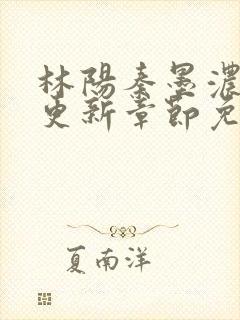 林陽秦墨濃
更新章節免
夏南洋